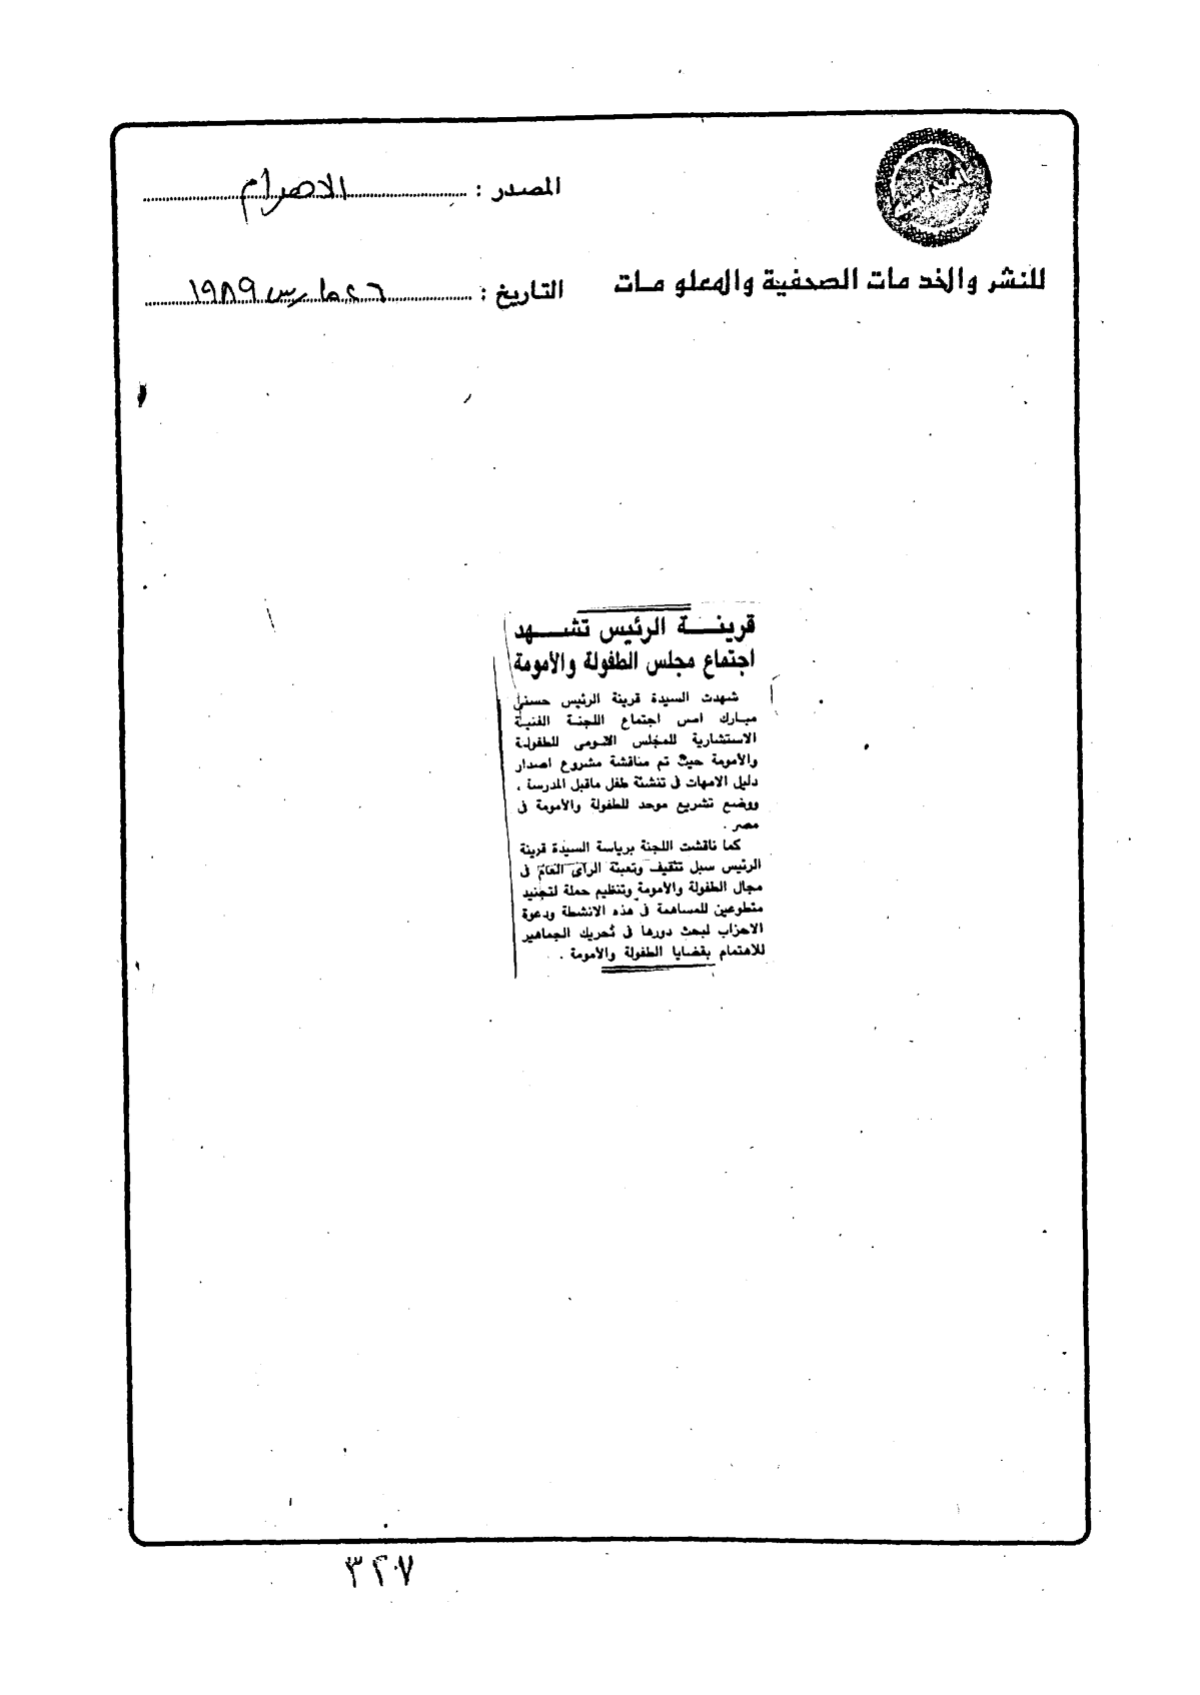 المصدر : الاهرام
للنشر والخدمات الصحفية والمعلومات
التاريخ : ٢٦ مارس ١٩٨٩
قرينة الرئيس تشهد
اجتماع مجلس الطفولة والأمومة
شهدت السيدة قرينة الرئيس حسنى
مبارك امس اجتماع اللجنة الفنية
الاستشارية للمجلس القومى للطفولة
والأمومة حيث تم مناقشة مشروع اصدار
دليل الامهات فى تنشئة طفل ماقبل المدرسة ،
ووضع تشريع موحد للطفولة والأمومة فى
مصر .
كما ناقشت اللجنة برياسة السيدة قرينة
الرئيس سبل تثقيف وتعبئة الرأى العام فى
مجال الطفولة والأمومة وتنظيم حملة لتجنيد
متطوعين للمساهمة فى هذه الانشطة ودعوة
الاحزاب لبحث دورها فى تحريك الجماهير
للاهتمام بقضايا الطفولة والأمومة .
٣٢٧